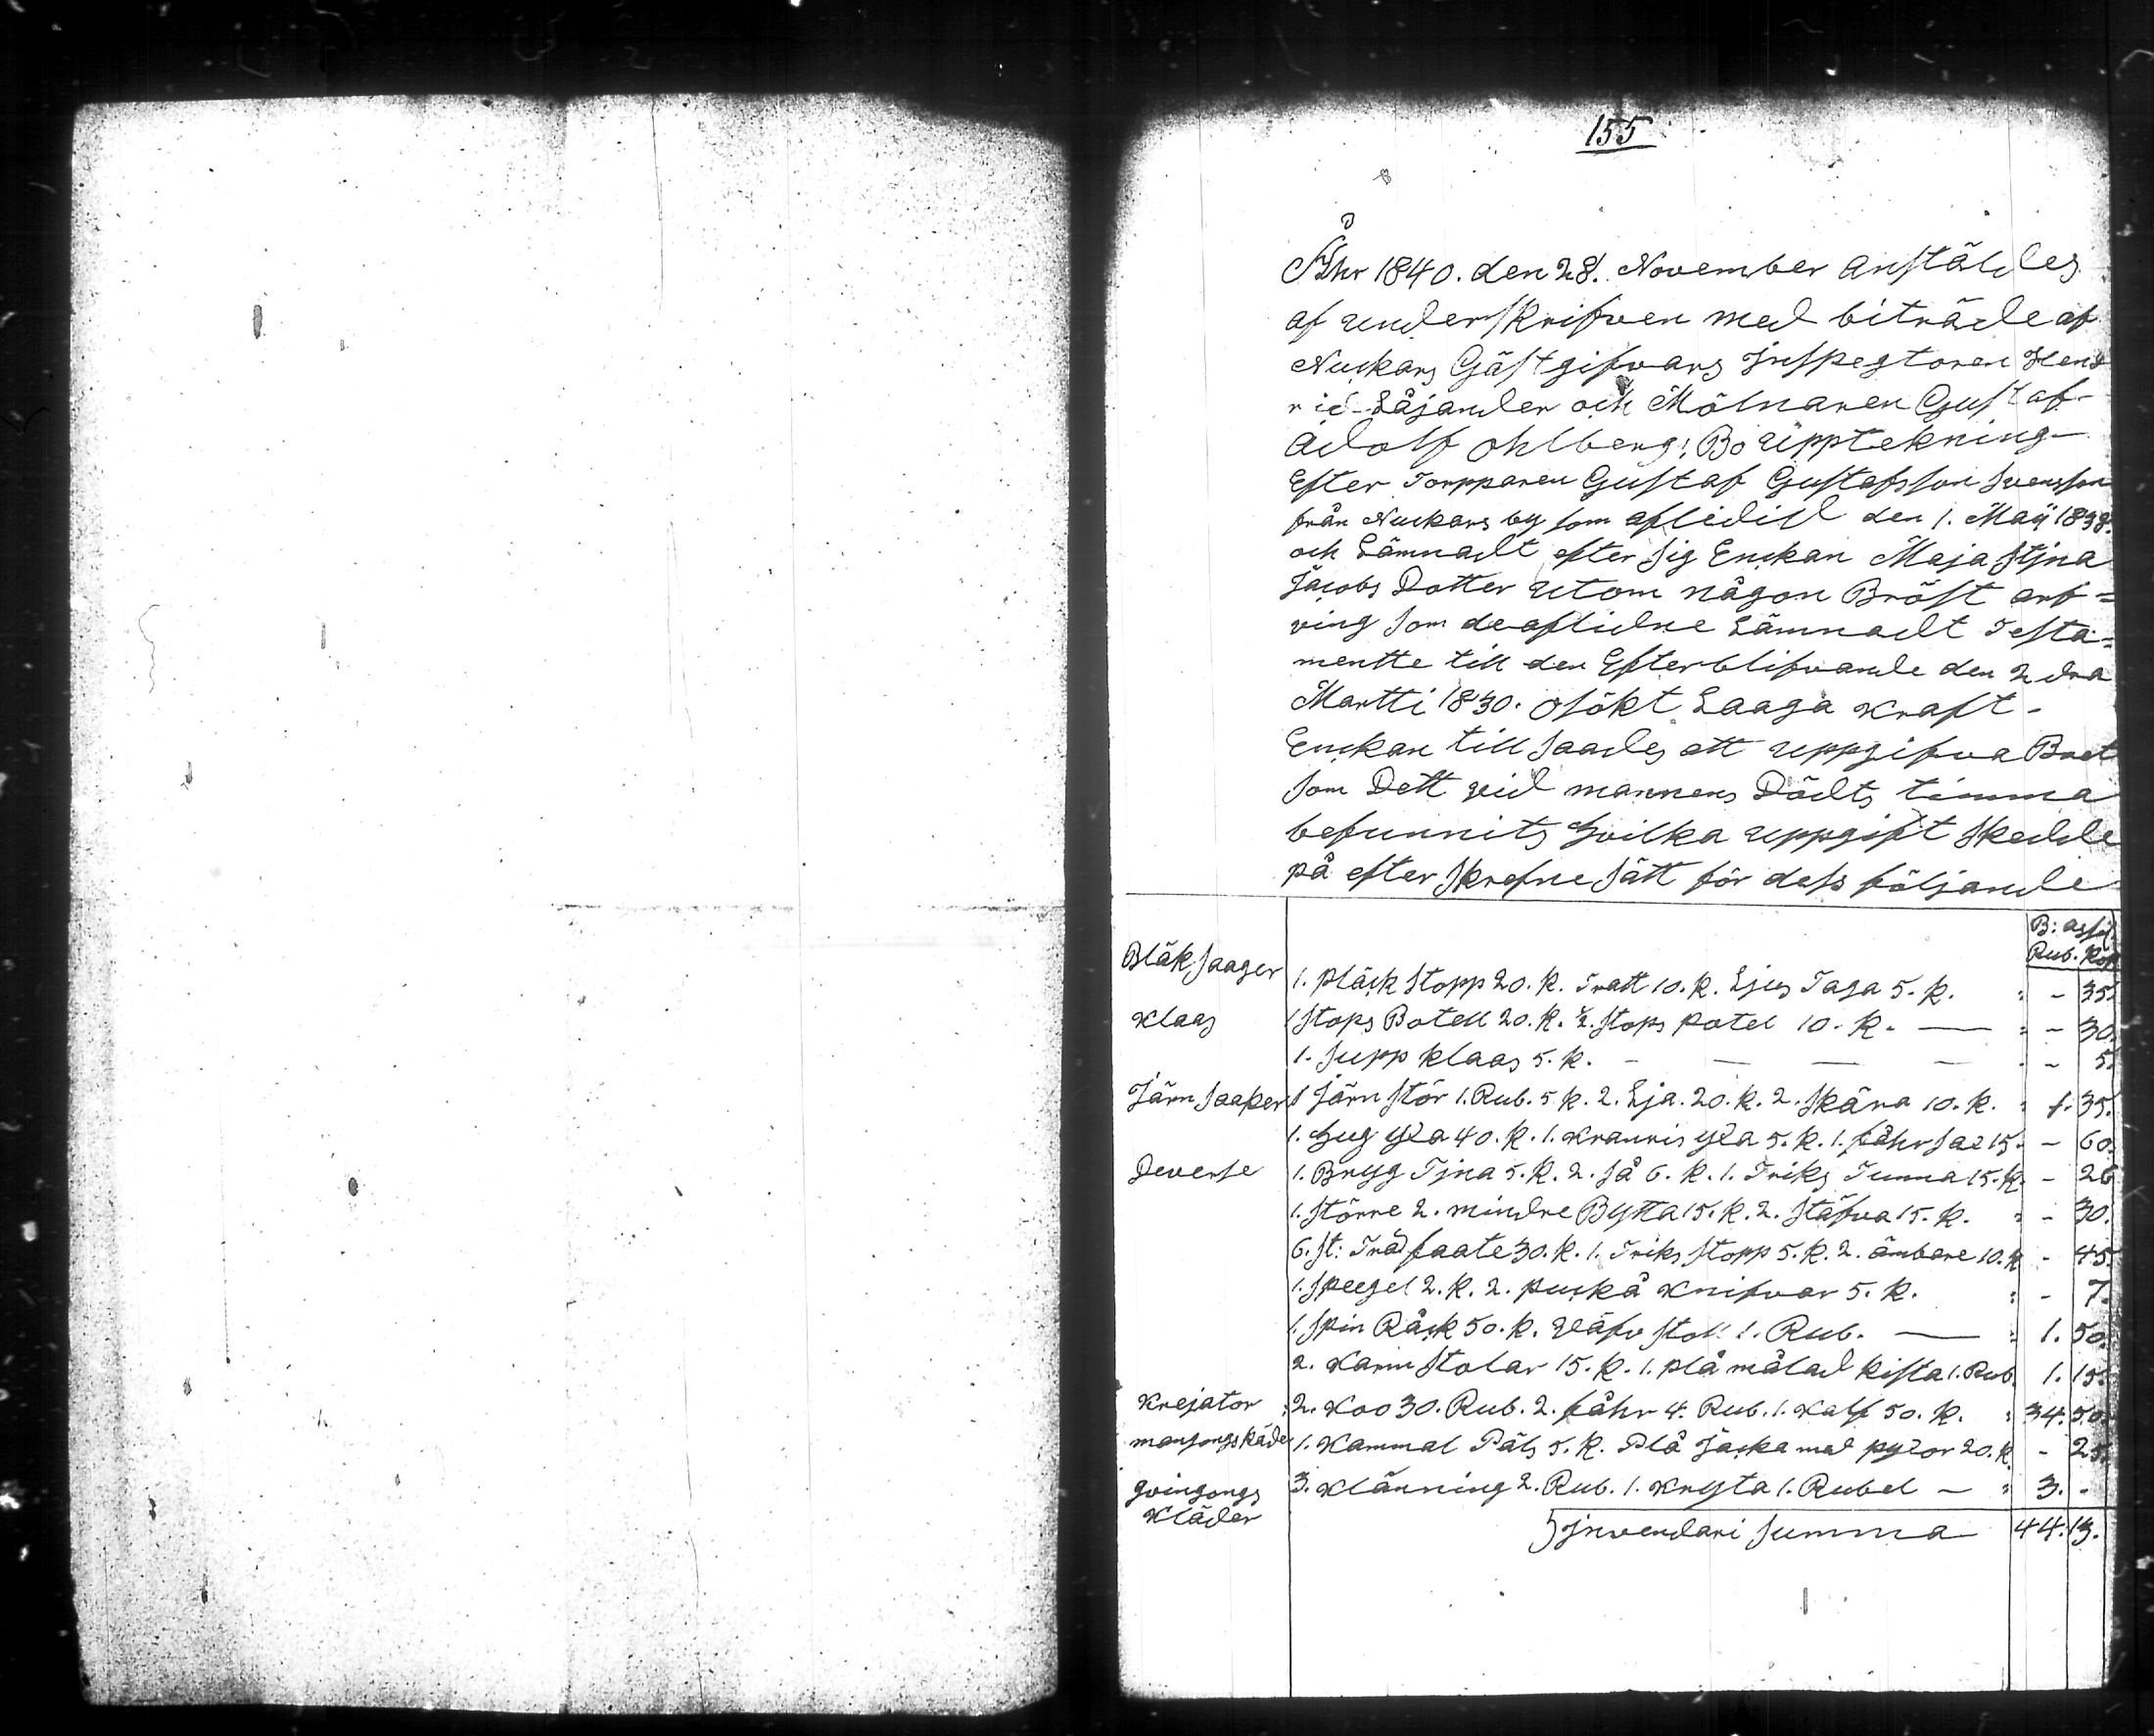 155
Åhr 1840. den 28. November anstäldes
af underskrifven med biträde af
Nuckars Gästgifvars Inspegtoren Hend
rid Låjander och Mölnaren Gustaf
Adolf Ohlberg; Bo upptekning
Efter Torpparen Gustaf Gustafsson Svensson
från Nuckars by som aflidid den 1. Maij 1838.
och Lämnadt efter sig Enckan Maja Stjna
Jacobs Dotter utom någon Bröst arf=
ving som de aflidne Lämnadt Testa=
mentte till den Efterblifvande den 2 dra
Martti 1830. osökt Laaga Kraft.
Enckan till saades att uppgifva Boet
som Dett vid mannens Dödts timma
befunnits hvilka uppgift skedde
på efter skrefne sätt för dess följande
B: assi
Rub. Kop
Bläk saager 1. pläck stopp 20. K. Tratt 10. K. Ljus Taga 5. K. " - 35.
Klaas 1 Stops Botell 20. K. ½. stops potel 10. K. — " - 30.
1. supp klaas 5. K. - — — — - 5.
Järn saaker 1 järn stör 1. Rub. 5 K. 2. Lja. 20. K. 2. skära 10. K. " 1. 35.
1. hug yxa 40. K. 1. kranris yxa 5. K. 1. fåhr sax 15. - 60.
Deverse 1. Brygg Tjna 5. K. 2. så 6. K. 1. Triks Tunna 15. K. - 26
1. större 2. mindre Bytta 15. K. 2. stäfva 15. K. " - 30.
6. st: Träd faate 30. K. 1. Triks stopp 5. K. 2. ämbare 10. K - 45.
1. speegel 2. K. 2. puckå Knifvar 5. K. " - 7.
1. spin Råck 50. K. Väfv stoll 1. Rub. — " 1. 50.
2. Karm stolar 15. K. 1. plå målad kista 1. Rub. 1. 15.
Krejator 2. Koo 30. Rub. 2. fåhr 4. Rub. 1. Kalf 50. K. " 34. 50.
mansongs käder 1. Kammal Päls 5. K. Plå Jacka mad pyxor 20. K. - 25.
gvingongs 3. Klänning 2. Rub. 1. Kryta 1. Rubel — " 3. -
Kläder
Invendari summa 44. 13.